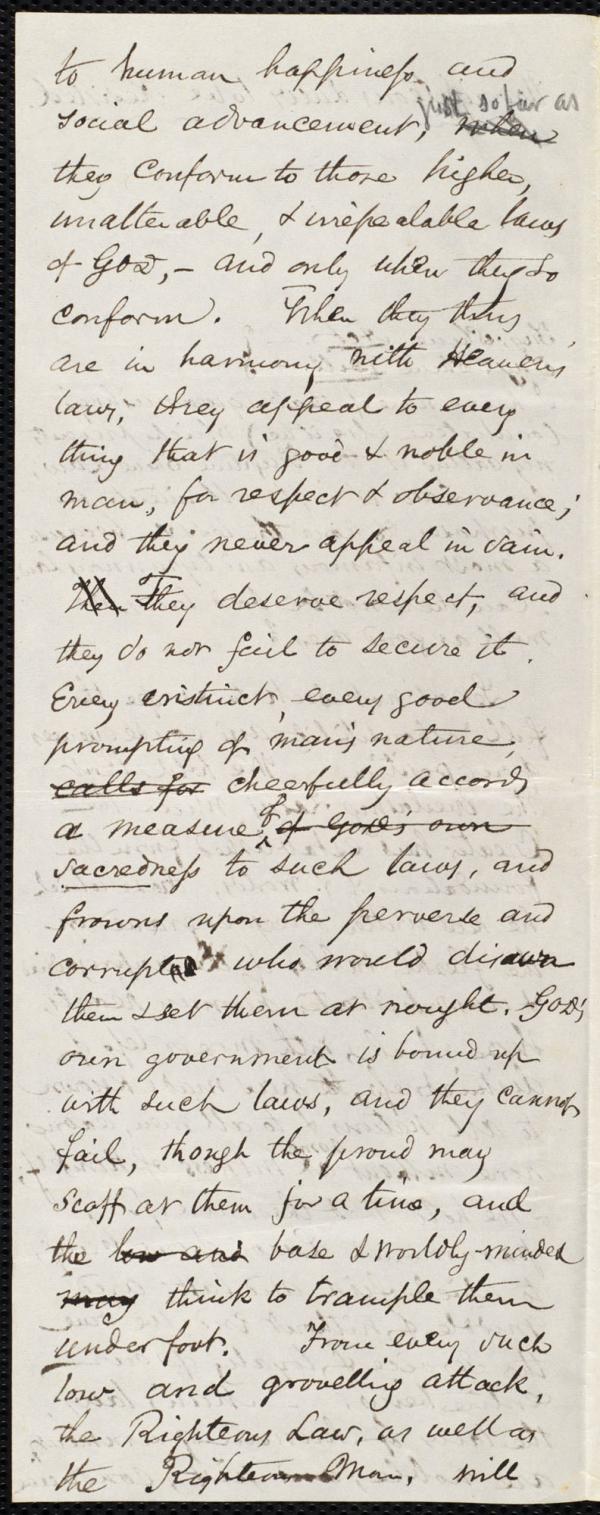 to human happiness and
just so far as
social advancement, when
they conform to those higher,
unalterable, & irrepealable laws
of God, - and only when they do
conform. When they thus
are in harmony with Heaven's
laws, they appeal to every
thing that is good & noble in
man, for respect & observance;
and they never appeal in vain.
Then They deserve respect, and
they do not fail to secure it.
Every instinct, every good
prompting of man's nature,
calls for cheerfully accords
a measure of of God's own
sacredness to such laws, and
frowns upon the perverse and
corrupted who would disown
them & set them at nought. God's
own government is bound up
with such laws, and they cannot
fail, though the proud may
scoff at them for a time, and
the low and base & worldly-minded
may think to trample them
under foot. From every such
low and grovelling attack,
the Righteous Law, as well as
the Righteous Man, will